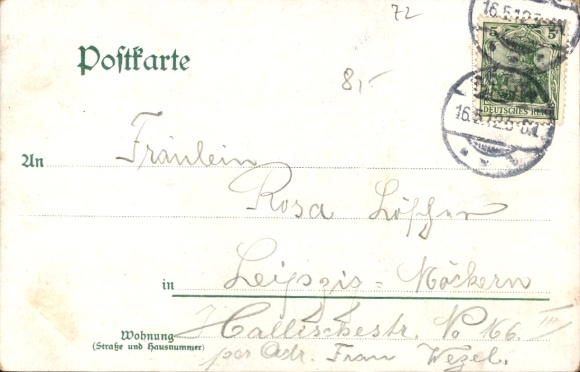 72
16.5.12.5-6N.
5 5
Postkarte
8,-
DEUTSCHES REICH
16.5.12.5-6N.
An Fräulein
Rosa Löscher
in Leipzig-Möckern
Wohnung Hallischestr. No 166. III
(Straße und Hausnummer) per Adr. Frau Wezel.